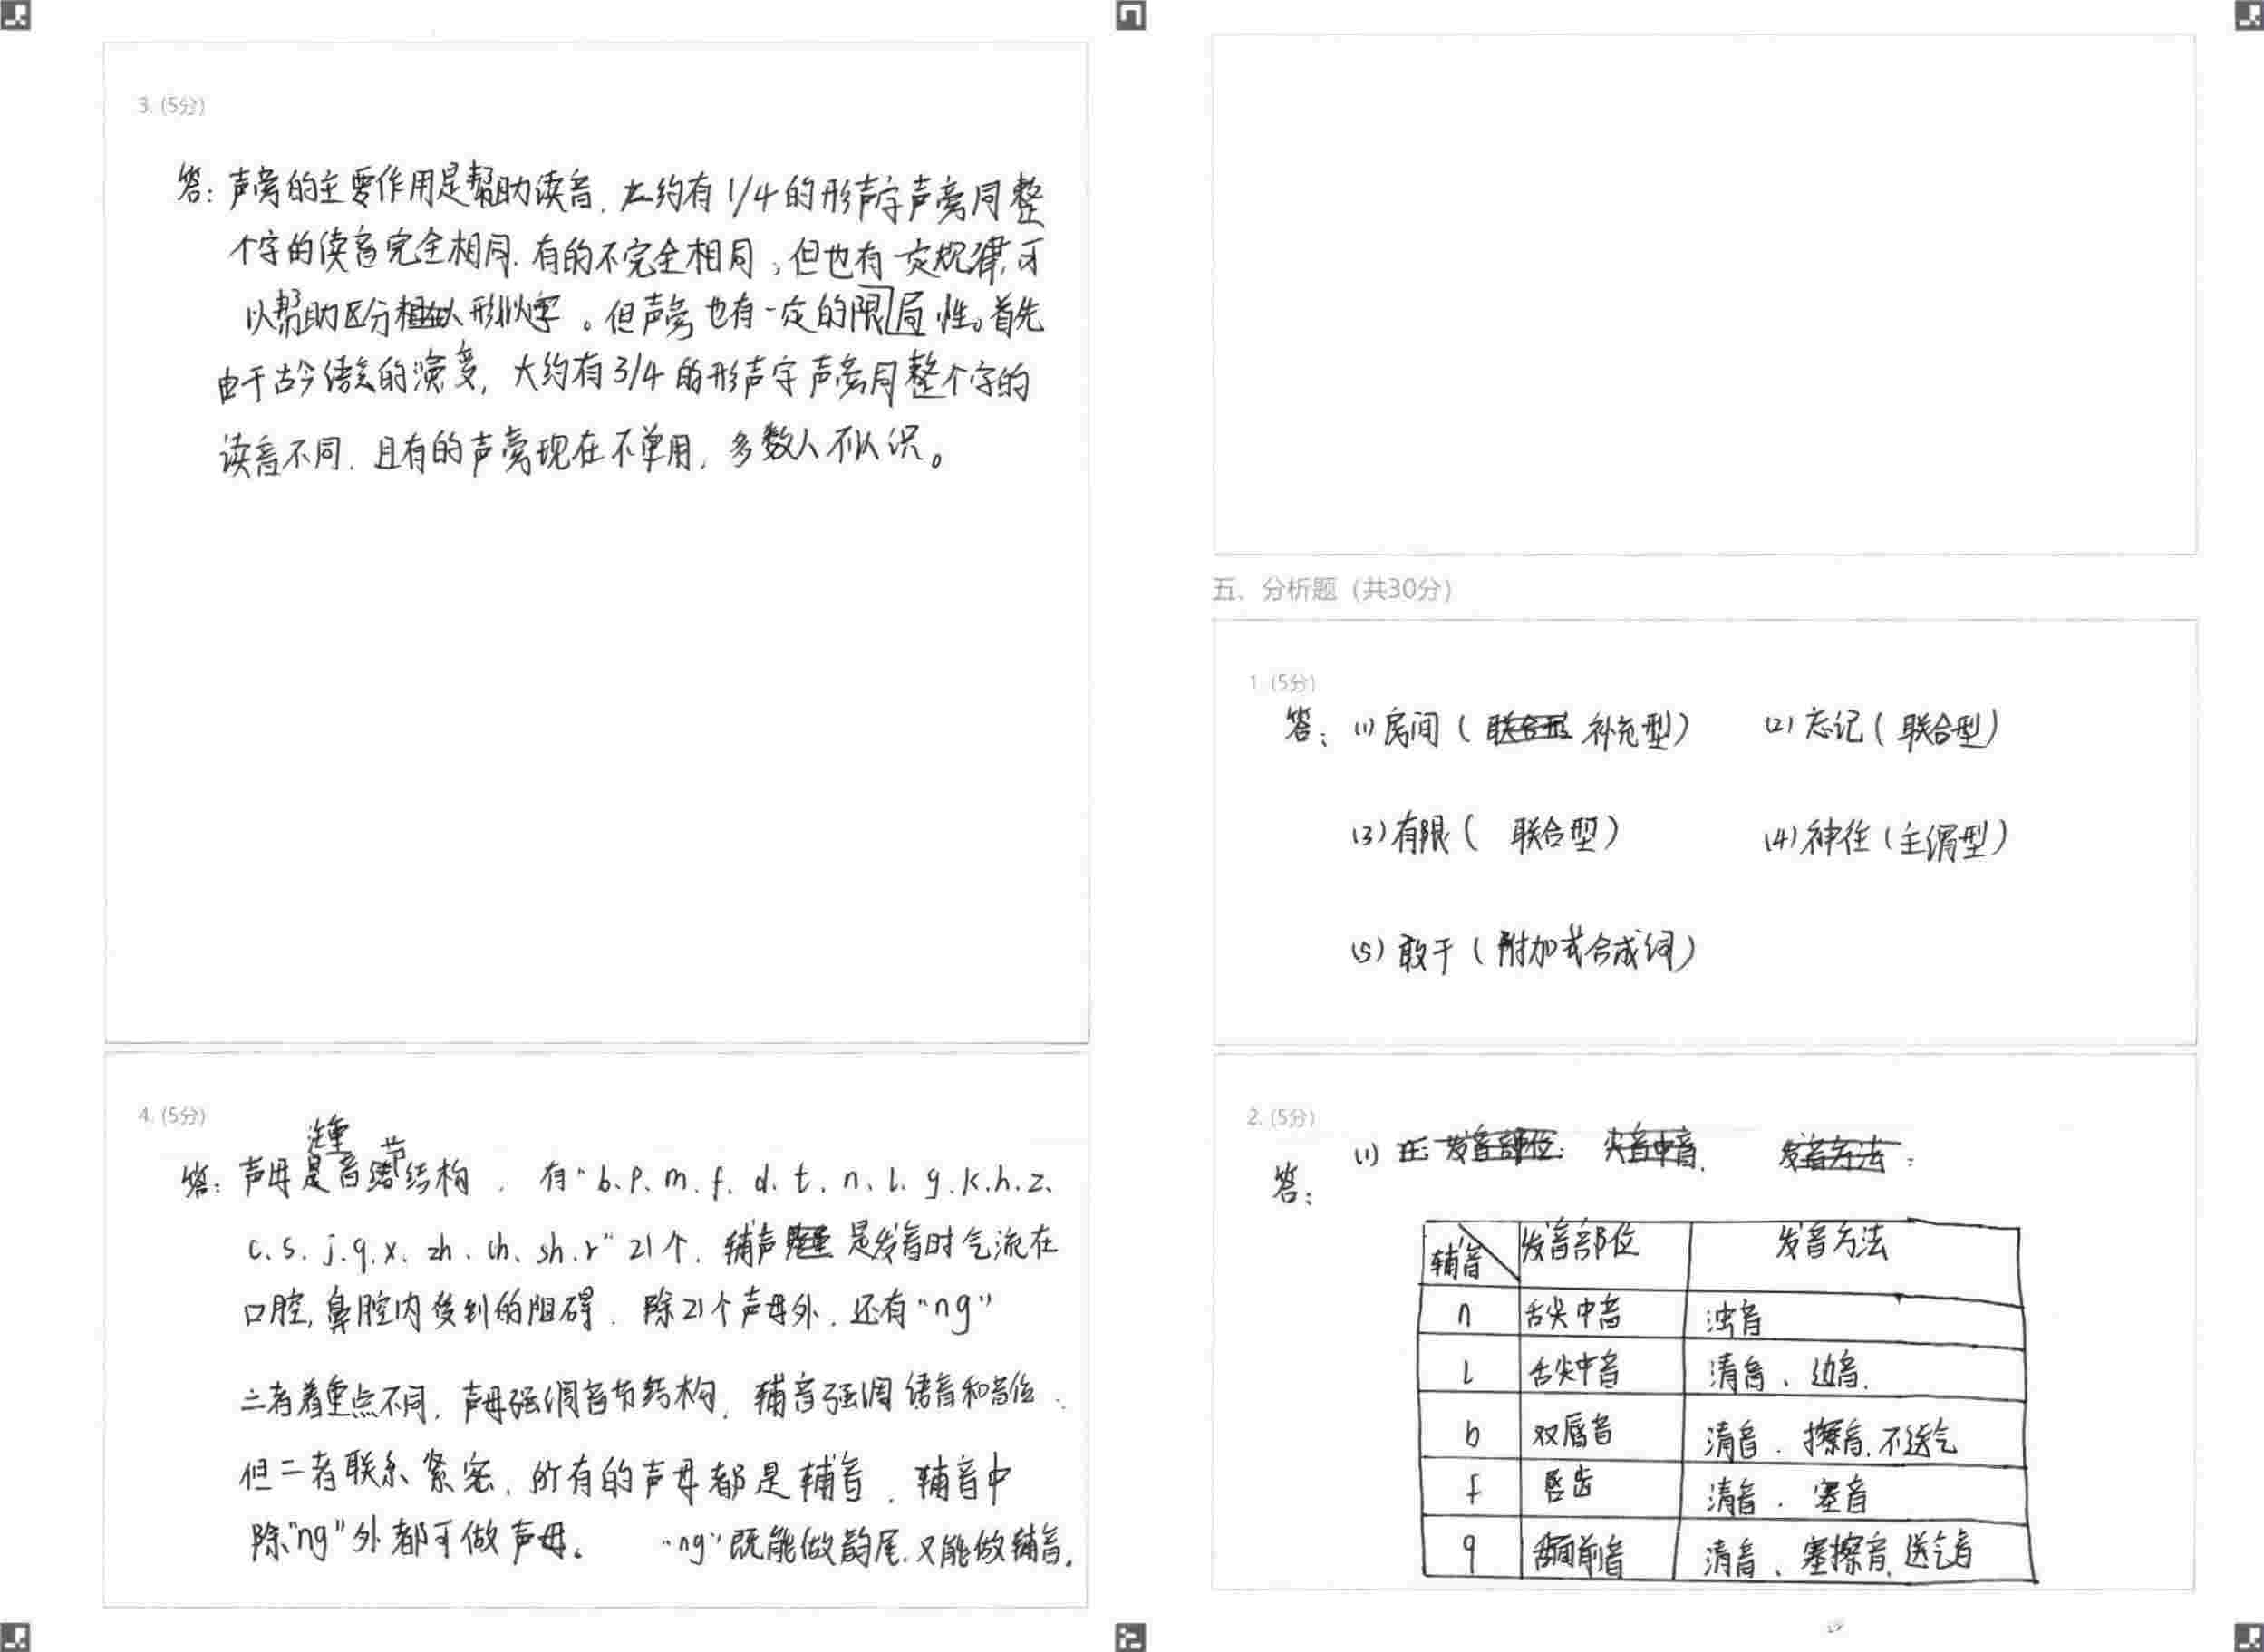 3. (5分)
答：声旁的主要作用是帮助读音，大约有1/4的形声字声旁同整
个字的读音完全相同．有的不完全相同，但也有一定规律，可
以帮助区分形似字。但声旁也有一定的限局性。首先
由于古今语音的演变，大约有3/4的形声字声旁同整个字的
读音不同．且有的声旁现在不单用，多数人不认识。
4. (5分)
注重 节
答：声母是音结构，有“b、p、m、f、d、t、n、l、g、k、h、z、
c、s、j、q、x、zh、ch、sh、r”21个．辅声是发音时气流在
口腔，鼻腔内受到的阻碍．除21个声母外．还有“ng”
二者着重点不同，声母强调音节结构，辅音强调语音和音位．
但二者联系紧密，所有的声母都是辅音．辅音中
除“ng”外都可做声母。 “ng”既能做韵尾，又能做辅音。
五、分析题（共30分）
1. (5分)
答：(1)房间（补充型） (2)忘记（联合型）
(3)有限（联合型） (4)神往（主谓型）
(5)敢于（附加式合成词）
2. (5分)
答： (1)
辅音 发音部位 发音方法
n 舌尖中音 浊音
l 舌尖中音 清音、边音．
b 双唇音 清音．擦音．不送气
f 唇齿 清音．塞音
q 舌面前音 清音、塞擦音．送气音